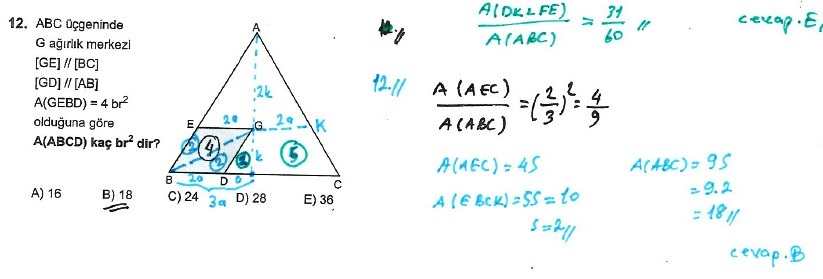 12. ABC üçgeninde
G ağırlık merkezi
[GE] // [BC]
[GD] // [AB]
A(GEBD) = 4 br²
olduğuna göre
A(ABCD) kaç br² dir?
A) 16 B) 18 C) 24 D) 28 E) 36
A
2k
E 2a G 2a K
2 4 2 k 5
B 2a D a C
3a
A(DKLFE) / A(ABC) = 31/60 //
cevap.E,
12.//
A(AEC) / A(ABC) = (2/3)² = 4/9
A(AEC) = 4S
A(EBCK) = 5S = 10
S = 2 //
A(ABC) = 9S
= 9.2
= 18 //
cevap.B